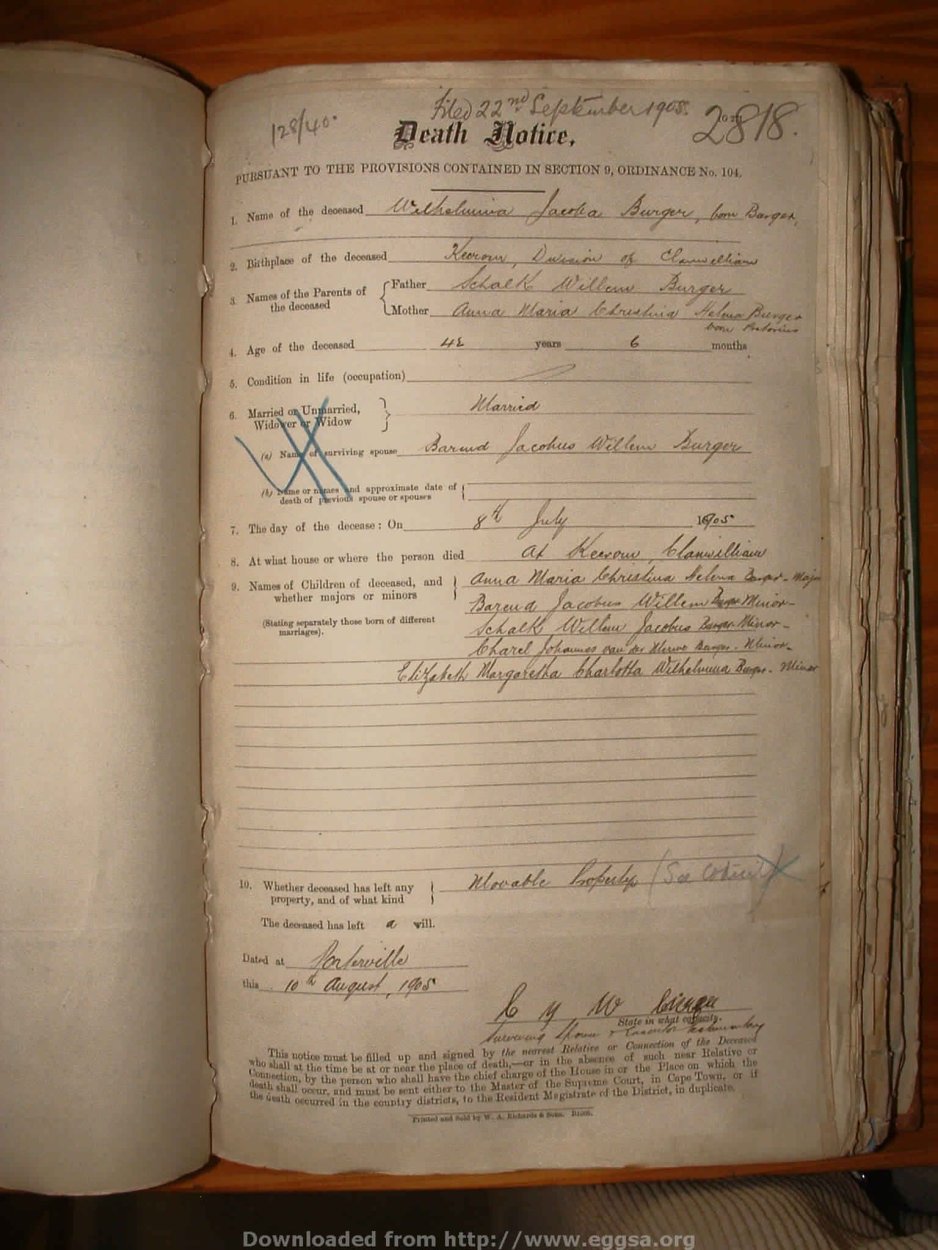 Filed 22nd September 1905.
128/40.
2818.
Death Notice.
PURSUANT TO THE PROVISIONS CONTAINED IN SECTION 9, ORDINANCE No. 104.
1. Name of the deceased Wilhelmina Jacoba Burger, born Burger,
2. Birthplace of the deceased Keerom, Division of Clanwilliam
3. Names of the Parents of the deceased { Father Schalk Willem Burger
Mother Anna Maria Christina Helena Burger
born Pretorius
4. Age of the deceased 42 years 6 months
5. Condition in life (occupation)
6. Married or Unmarried, Widower or Widow } Married
(a) Name of surviving spouse Barend Jacobus Willem Burger
(b) Name or names and approximate date of death of previous spouse or spouses {
7. The day of the decease: On 8th July 1905
8. At what house or where the person died At Keerom Clanwilliam
9. Names of Children of deceased, and whether majors or minors } Anna Maria Christina Helena Burger - Major
Barend Jacobus Willem Burger Minor -
(Stating separately those born of different marriages). Schalk Willem Jacobus Burger Minor -
Charel Johannes van der Merwe Burger. Minor -
Elizabeth Margaretha Charlotta Wilhelmina Burger. Minor
10. Whether deceased has left any property, and of what kind } Movable Property (See
The deceased has left a will.
Dated at Porterville
this 10th August, 1905
State in what capacity.
Surviving Spouse
This notice must be filled up and signed by the nearest Relative or Connection of the Deceased
who shall at the time be at or near the place of death,—or in the absence of such near Relative or
Connection, by the person who shall have the chief charge of the House in or the Place on which the
death shall occur, and must be sent either to the Master of the Supreme Court, in Cape Town, or if
the death occurred in the country districts, to the Resident Magistrate of the District, in duplicate.
Printed and Sold by W. A. Richards & Sons.
Downloaded from http://www.eggsa.org